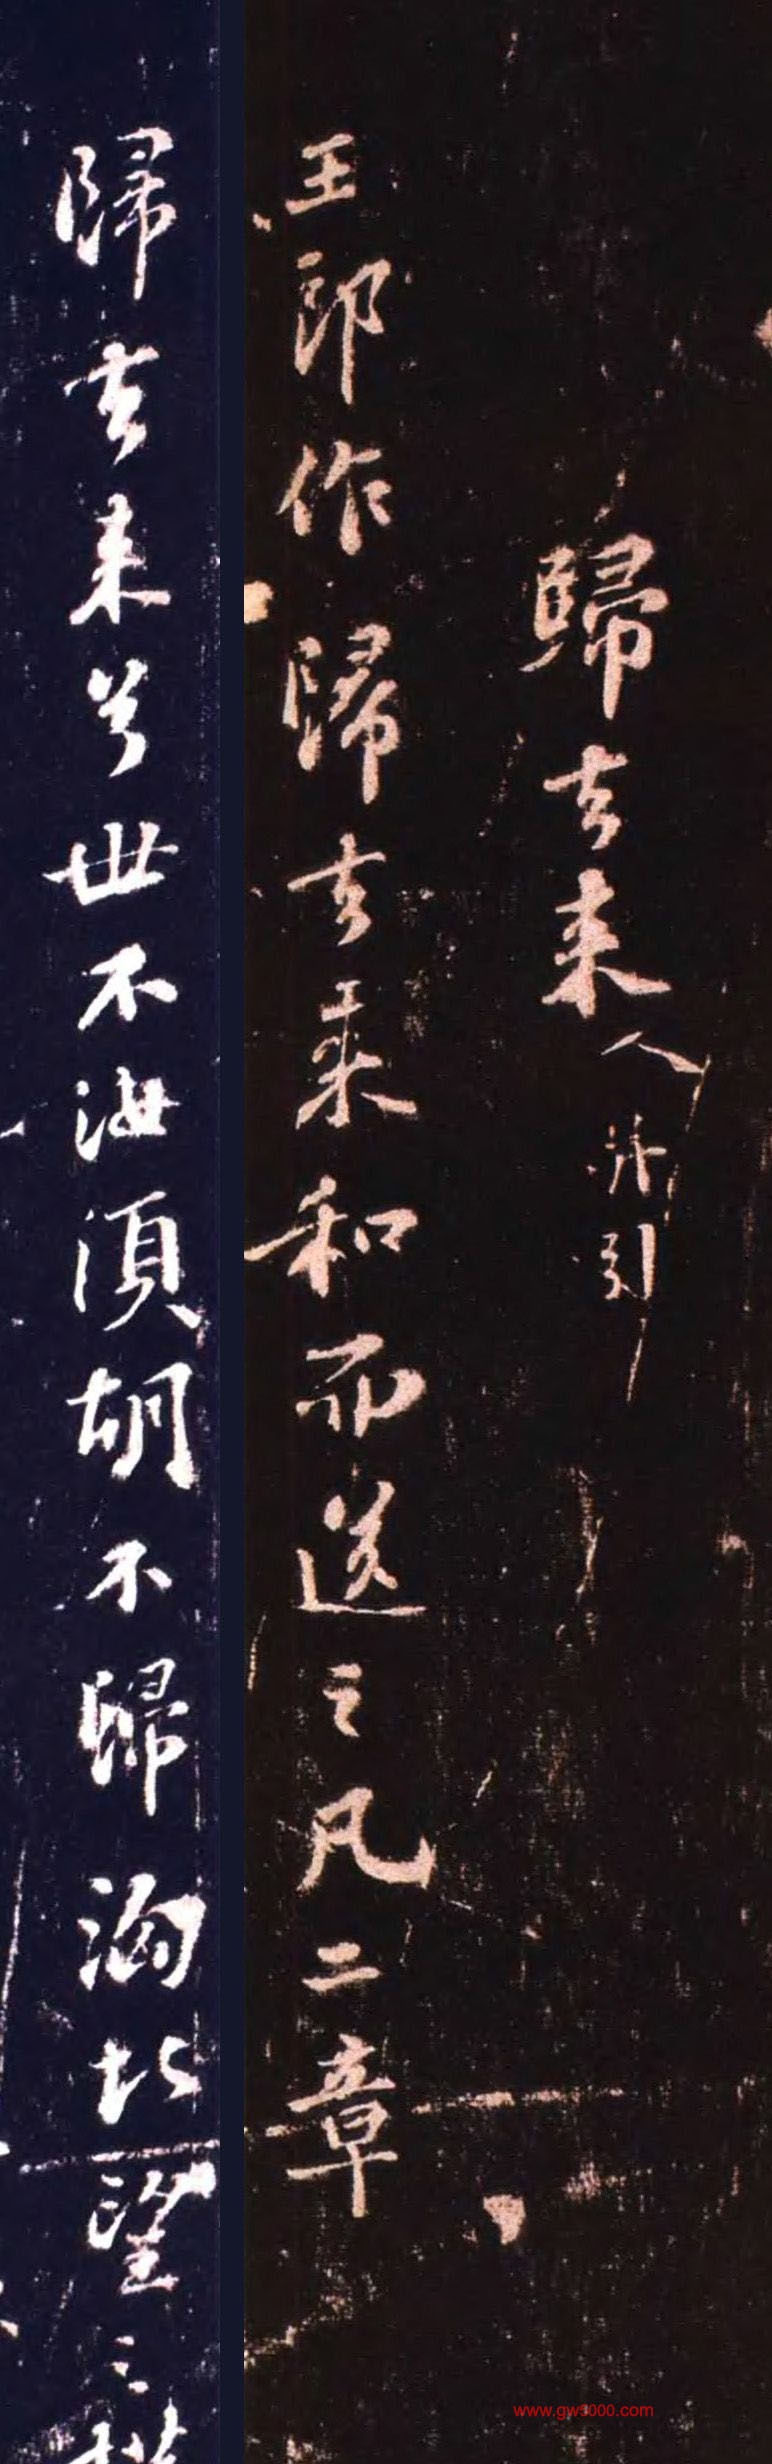 歸去来 并引
王郎作歸去来和而送之凡二章
歸去来兮世不汝須胡不歸洶北望之橫
www.gw3000.com